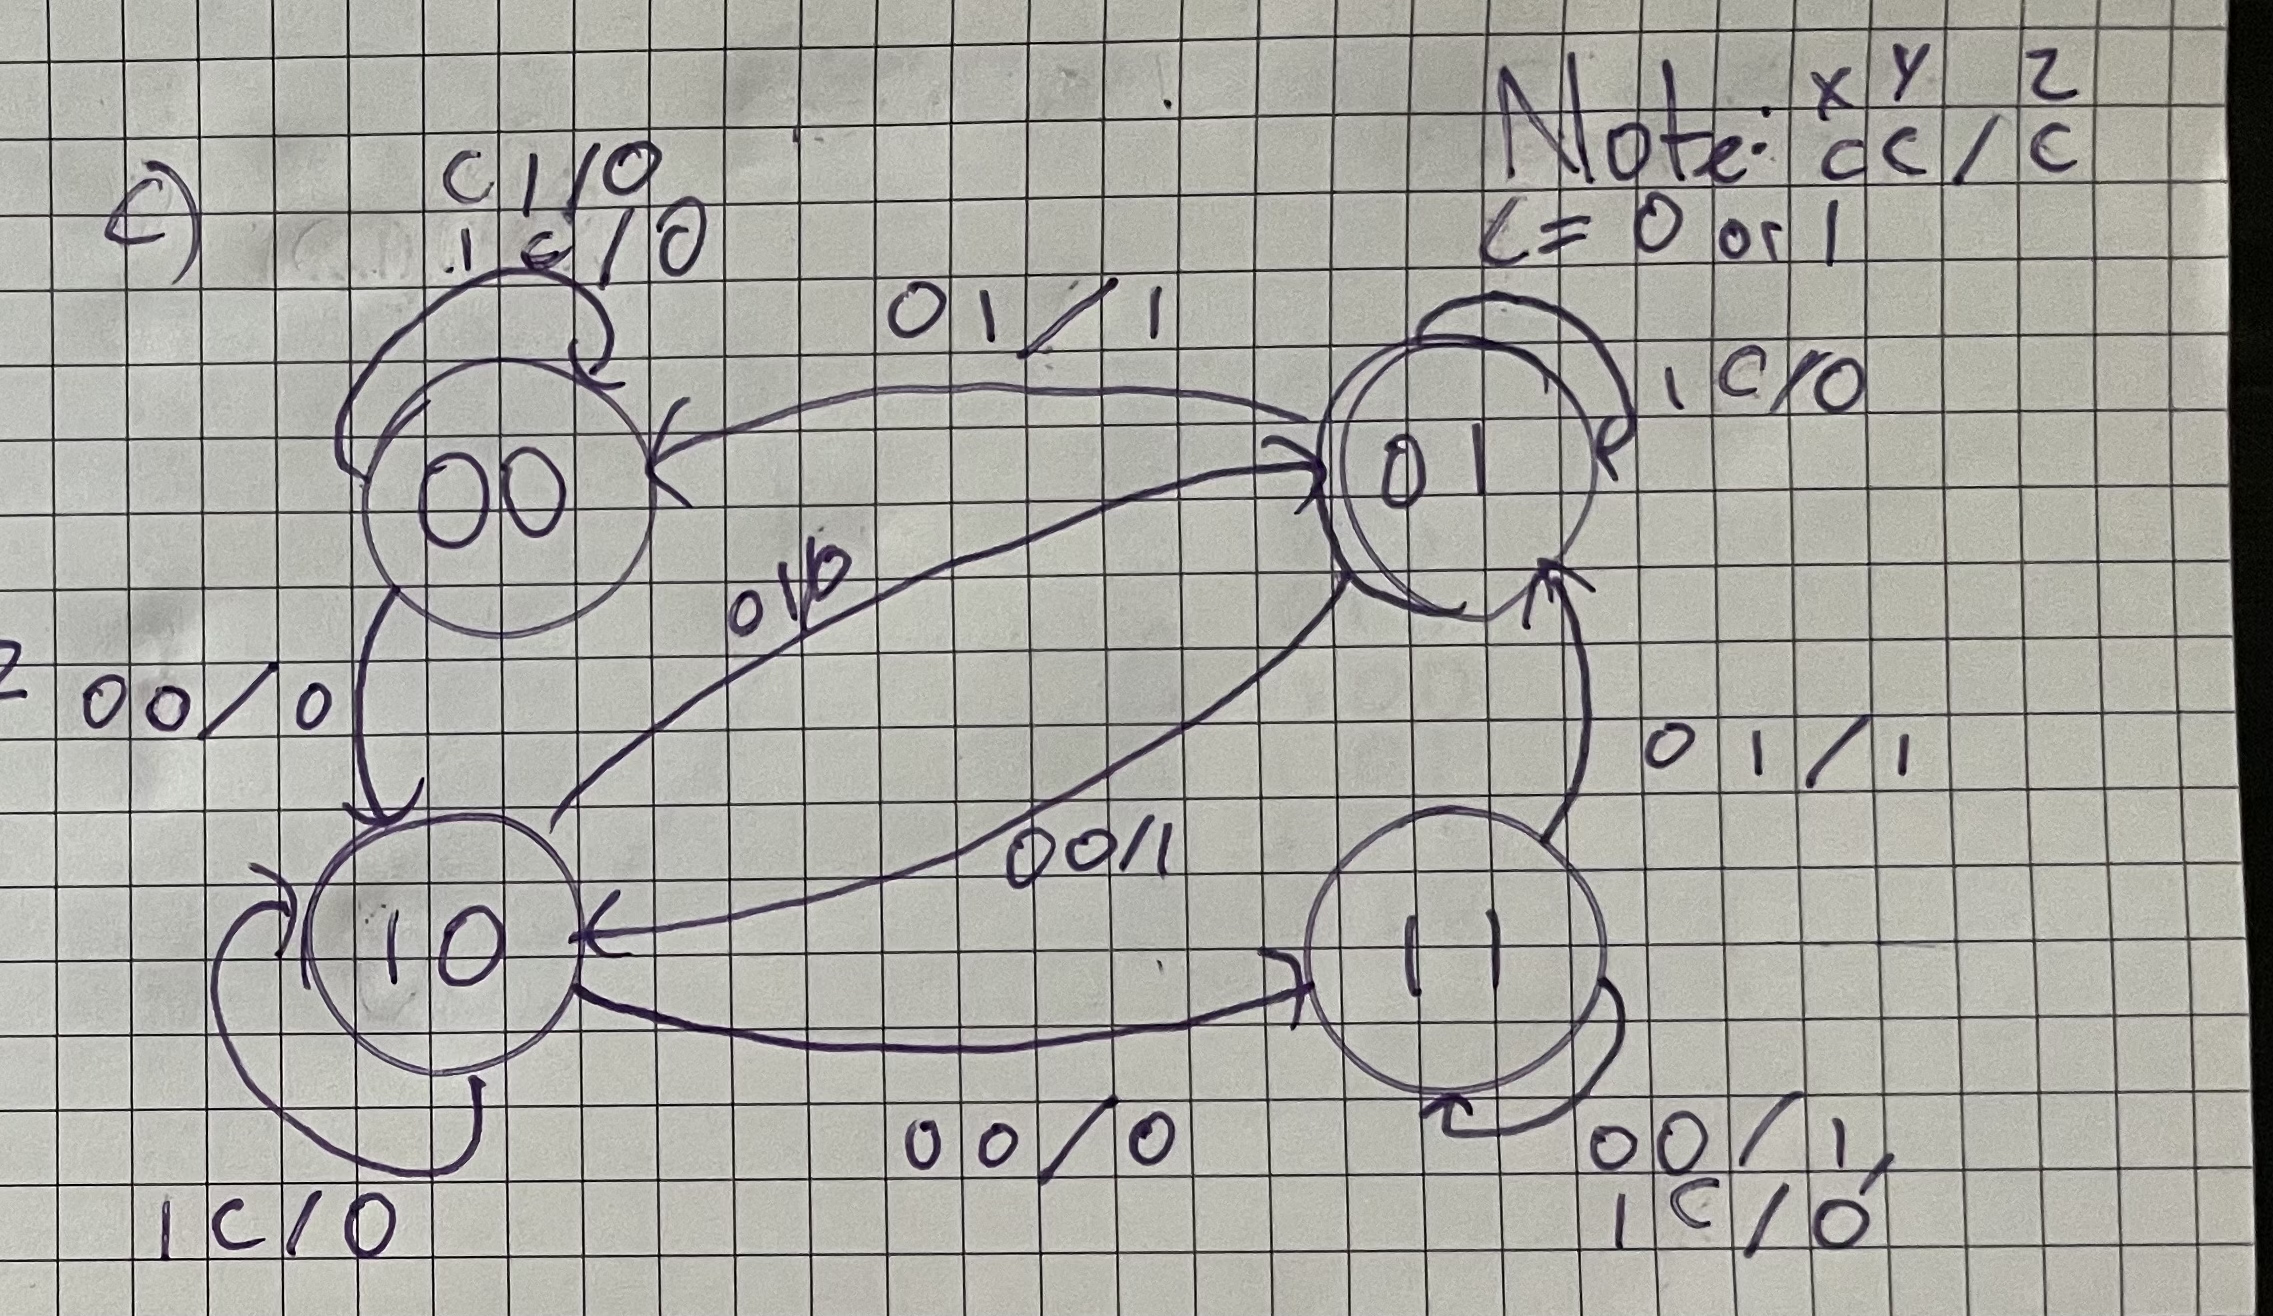 x y z
Note: cc/c
c = 0 or 1
c)
c1/0
1c/0
01/1
1c/0
00
01
01/0
00/0
01/1
00/1
10
11
00/0
00/1,
1c/0
1c/0